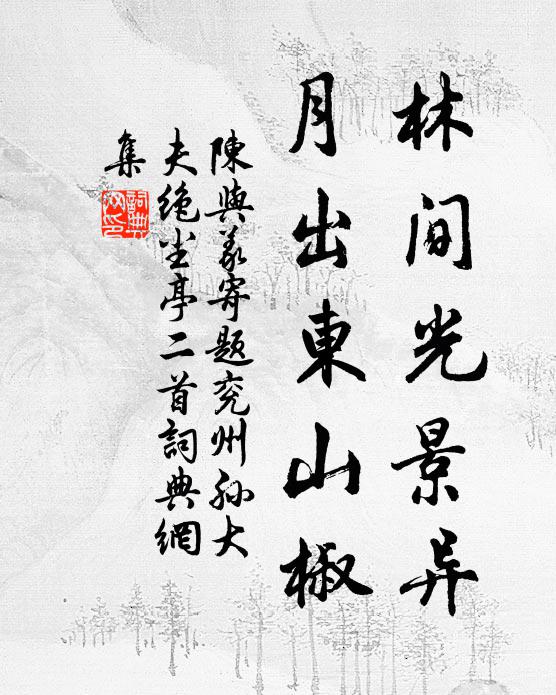 林間光景异
月出東山椒
陳與義寄題兖州孙大
夫絶尘亭二首詞典網
集
詞典
网印